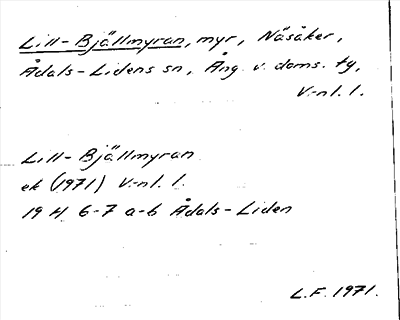 Lill-Bjällmyran, myr, Näsåker,
Ådals-Lidens sn, Ång. v. doms. tg,
V-nl. l.
Lill-Bjällmyran
ek (1971) V-nl. l.
19 H 6-7 a-b Ådals-Liden
L.F. 1971.